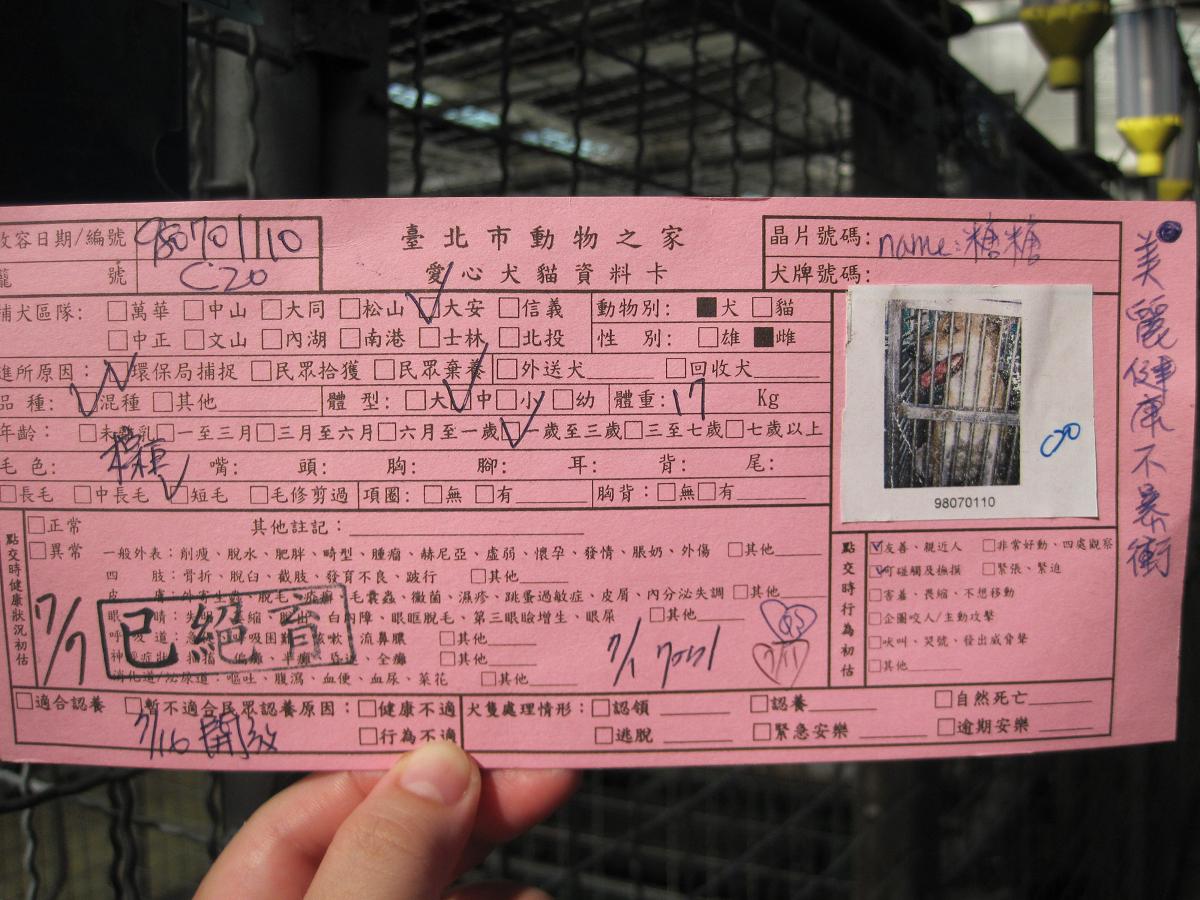 收容日期/編號 98070110
臺北市動物之家
晶片號碼: name:糖糖
籠 號 C20
愛心犬貓資料卡
犬牌號碼:
美麗健康不暴衝
捕犬區隊: □萬華 □中山 □大同 □松山 □大安 □信義
動物別: ■犬 □貓
□中正 □文山 □內湖 □南港 □士林 □北投
性 別: □雄 ■雌
進所原因: □環保局捕捉 □民眾拾獲 □民眾棄養 □外送犬 □回收犬
品種: □混種 □其他 體型: □大 □中 □小 □幼 體重: 17 Kg
年齡: □未離乳 □一至三月 □三月至六月 □六月至一歲 □一歲至三歲 □三至七歲 □七歲以上
毛色: 嘴: 頭: 胸: 腳: 耳: 背: 尾:
□長毛 □中長毛 □短毛 □毛修剪過 項圈: □無 □有 胸背: □無 □有
C20
98070110
點交時健康狀況初估
□正常 其他註記:
□異常 一般外表: 削瘦、脫水、肥胖、畸型、腫瘤、赫尼亞、虛弱、懷孕、發情、脹奶、外傷 □其他
四 肢: 骨折、脫臼、截肢、發育不良、跛行 □其他
皮 膚: 外寄生蟲、脫毛、疥癬、毛囊蟲、黴菌、濕疹、跳蚤過敏症、皮屑、內分泌失調 □其他
眼 睛: 白內障、眼眶脫毛、第三眼瞼增生、眼屎 □其他
呼吸道: 呼吸困難、咳嗽、流鼻膿 □其他
神經症狀: 偏癱、半癱、昏迷、全癱 □其他
消化道/泌尿道: 嘔吐、腹瀉、血便、血尿、菜花 □其他
7/7
已絕育
7/1
7/11
點交時行為初估
☑友善、親近人 □非常好動、四處觀察
☑可碰觸及撫摸 □緊張、緊迫
□害羞、畏縮、不想移動
□企圖咬人/主動攻擊
□吠叫、哭號、發出威脅聲
□其他
□適合認養 □暫不適合民眾認養原因: □健康不適 犬隻處理情形: □認領 □認養 □自然死亡
7/16 開放 □行為不適 □逃脫 □緊急安樂 □逾期安樂